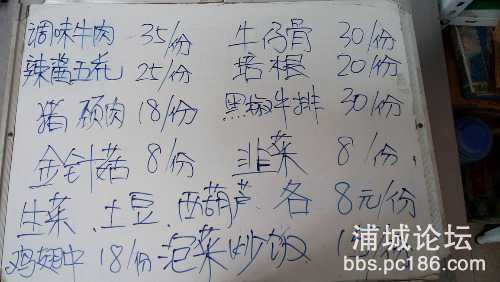 调味牛肉 35/份 牛仔骨 30/份
辣酱五花 25/份 培根 20/份
猪颈肉 18/份 黑椒牛排 30/份
金针菇 8/份 韭菜 8/份
生菜、土豆、西葫芦、各 8元/份
鸡翅中 18/份 泡菜炒饭
浦城论坛
bbs.pc186.com